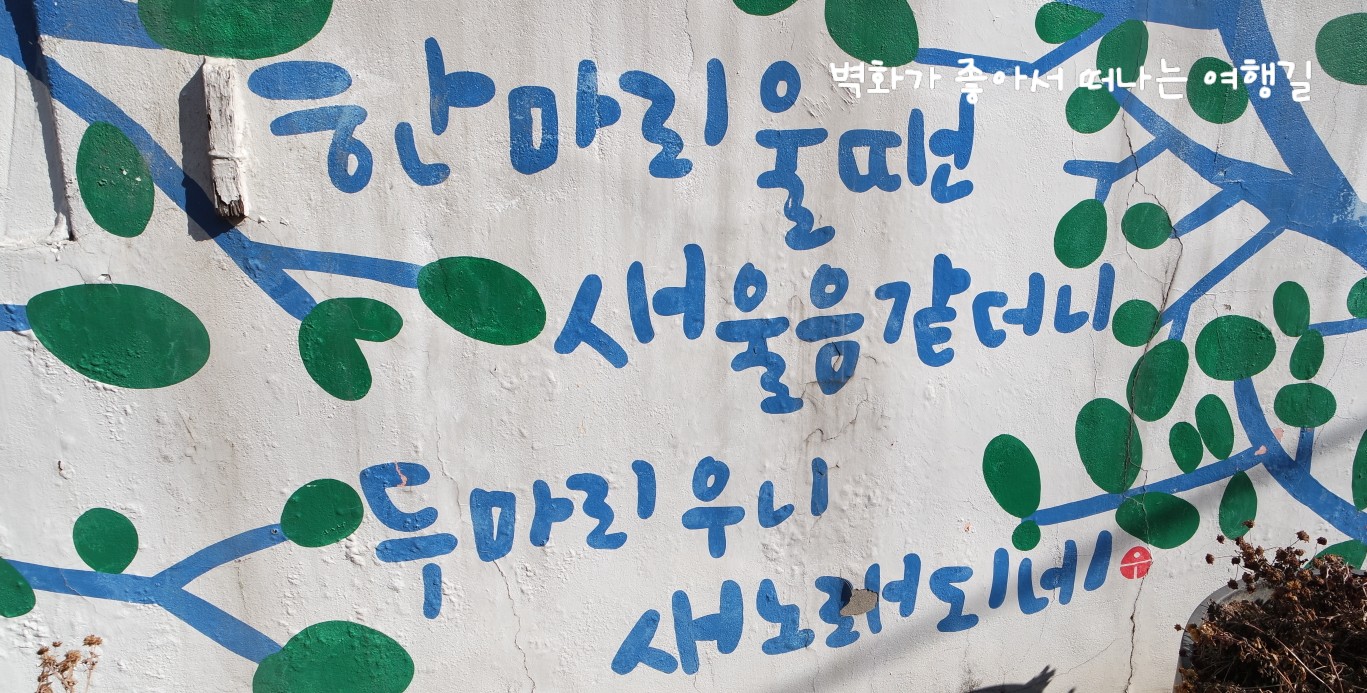 벽화가 좋아서 떠나는 여행길
한마리 울땐
새울음 같더니
두마리 우니
새노래 되네